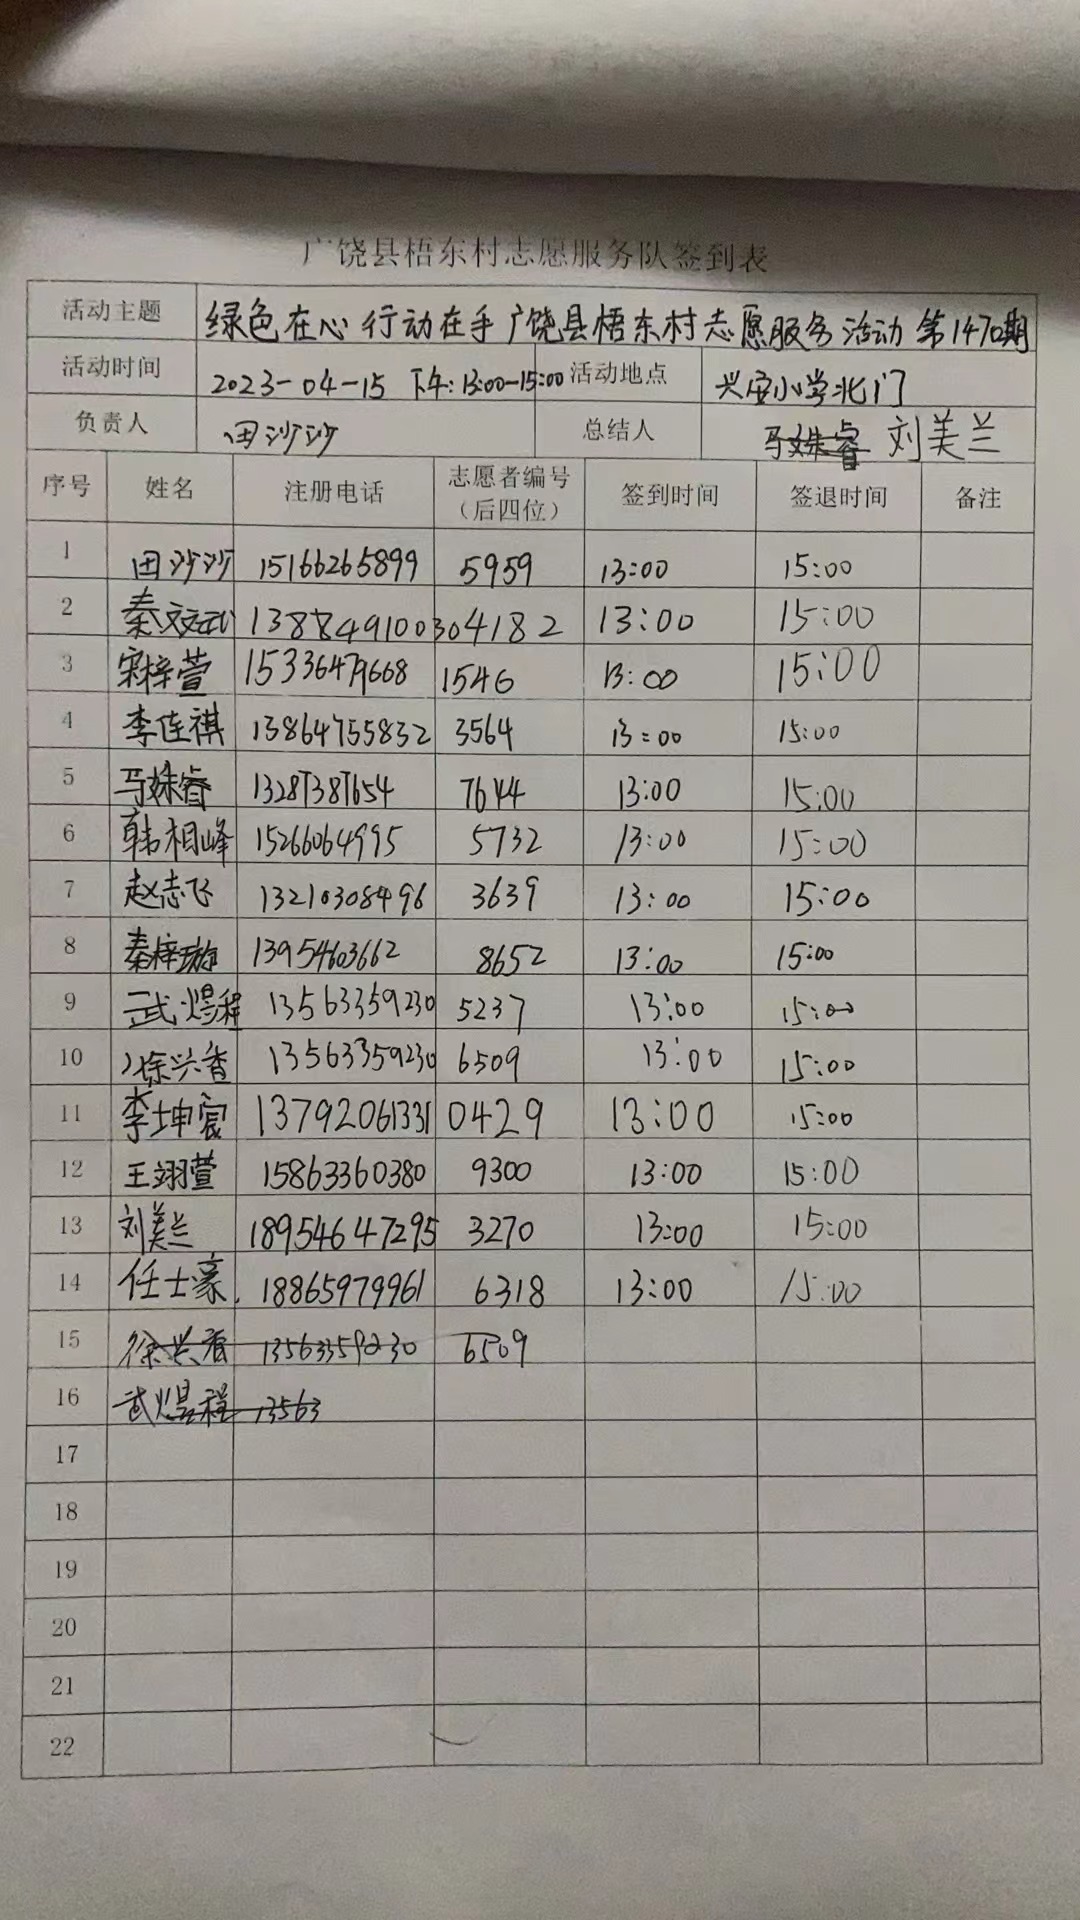 广饶县梧东村志愿服务队签到表
活动主题 绿色在心 行动在手 广饶县梧东村志愿服务活动 第1470期
活动时间 2023-04-15 下午:13:00-15:00 活动地点 兴安小学北门
负责人 田沙沙 总结人 马姝睿 刘美兰
序号 姓名 注册电话 志愿者编号（后四位） 签到时间 签退时间 备注
1 田沙沙 15166265899 5959 13:00 15:00
2 秦 13884910030 4182 13:00 15:00
3 宋梓萱 15336479668 1546 13:00 15:00
4 李连祺 13864755832 3564 13:00 15:00
5 马姝睿 13287387654 7644 13:00 15:00
6 韩相峰 15266064995 5732 13:00 15:00
7 赵志飞 13210308496 3639 13:00 15:00
8 秦梓璇 13954603662 8652 13:00 15:00
9 武煜程 13563359230 5237 13:00 15:00
10 徐兴香 13563359230 6509 13:00 15:00
11 李坤宸 13792061331 0429 13:00 15:00
12 王翊萱 15863360380 9300 13:00 15:00
13 刘美兰 18954647295 3270 13:00 15:00
14 任士豪. 18865979961 6318 13:00 15:00
15 徐兴香 13563359230 6509
16 武煜程 13563
17
18
19
20
21
22